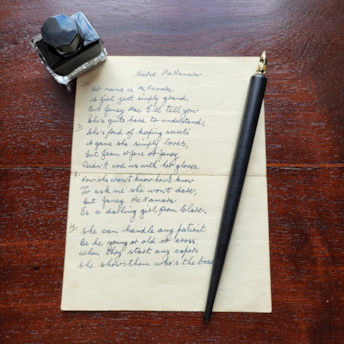 Nurse McNamara
Her name is McNamara
A girl just simply grand,
But Janey Mac I'll tell you
She's quite hard to understand;
She's fond of keeping secrets
A game she simply loves,
But Jean or Jane or Janey
Didn't cod us with her gloves.
How she won't know
To ask me she won't dare,
But Janey McNamara
Is a darling girl from Clare.
She can handle any patient
Be he young or old or cross,
When they start any capers
She shows them who's the boss